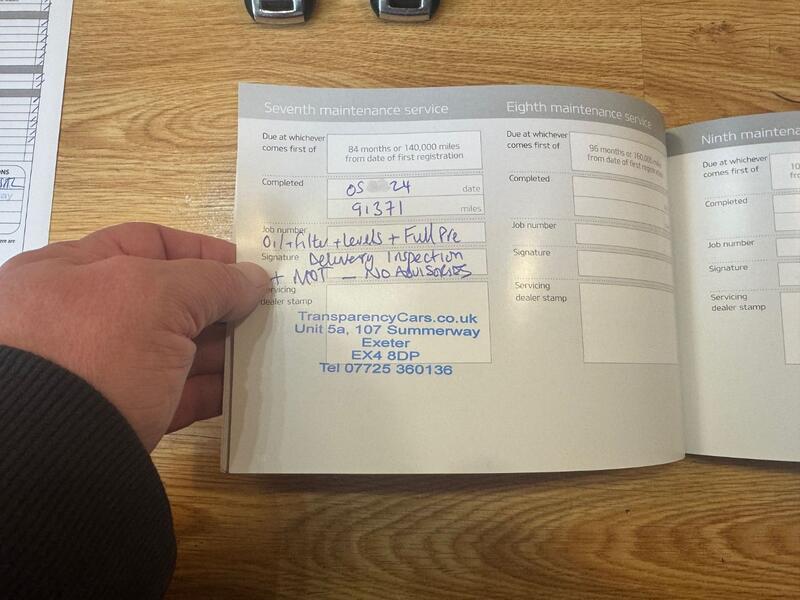 Seventh maintenance service
Due at whichever
comes first of
84 months or 140,000 miles
from date of first registration
Completed
05 24 date
91371 miles
Job number
Oil+Filter+Levels + Full Pre
Signature Delivery Inspection
+ MOT - NO ADVISORIES
Servicing
dealer stamp
TransparencyCars.co.uk
Unit 5a, 107 Summerway
Exeter
EX4 8DP
Tel 07725 360136
Eighth maintenance service
Due at whichever
comes first of
96 months or 160,000 miles
from date of first
Completed
Job number
Signature
Servicing
dealer stamp
Ninth
Due at whichever
comes first of
Completed
Job number
Signature
Servicing
dealer stamp